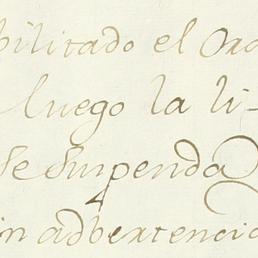 bilitado el Ord
luego la li-
se suspenda
in advertencia